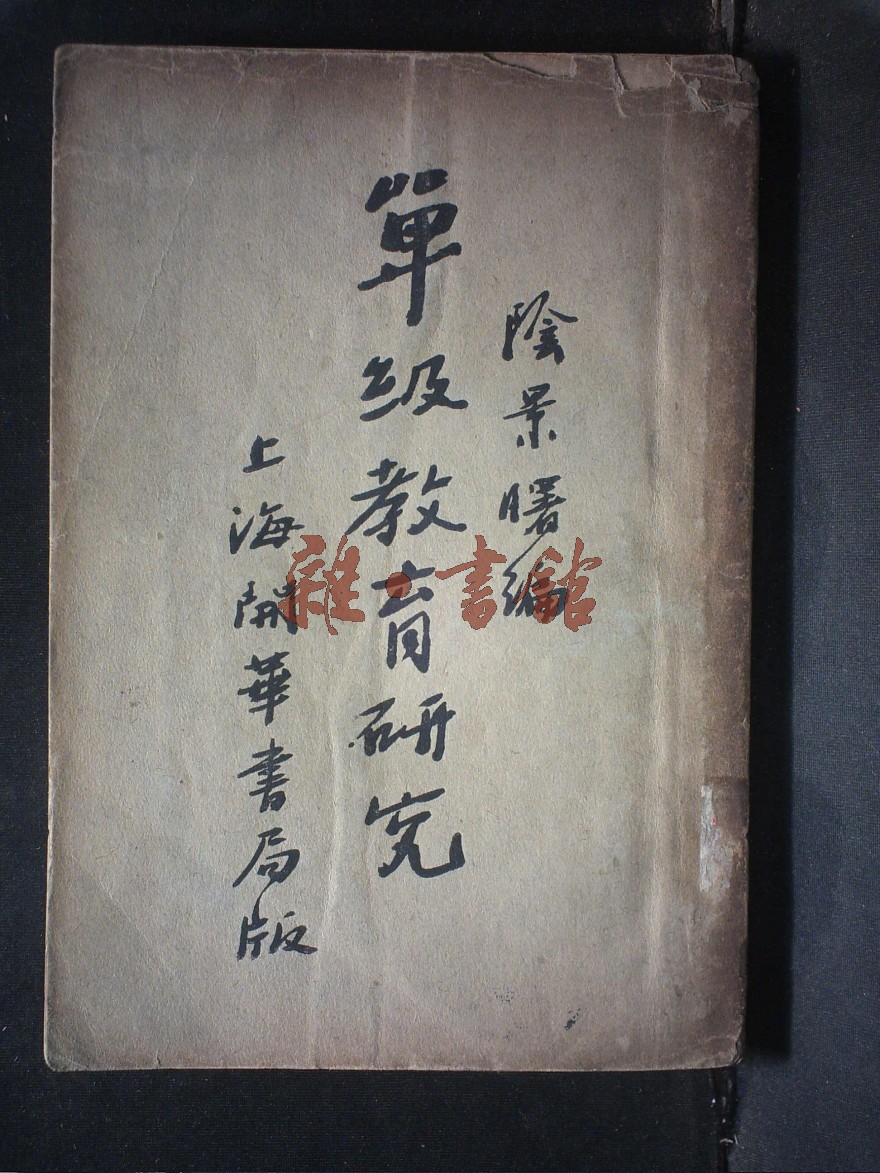 陰景曙編
單級教育研究
上海開華書局版
雜·書館